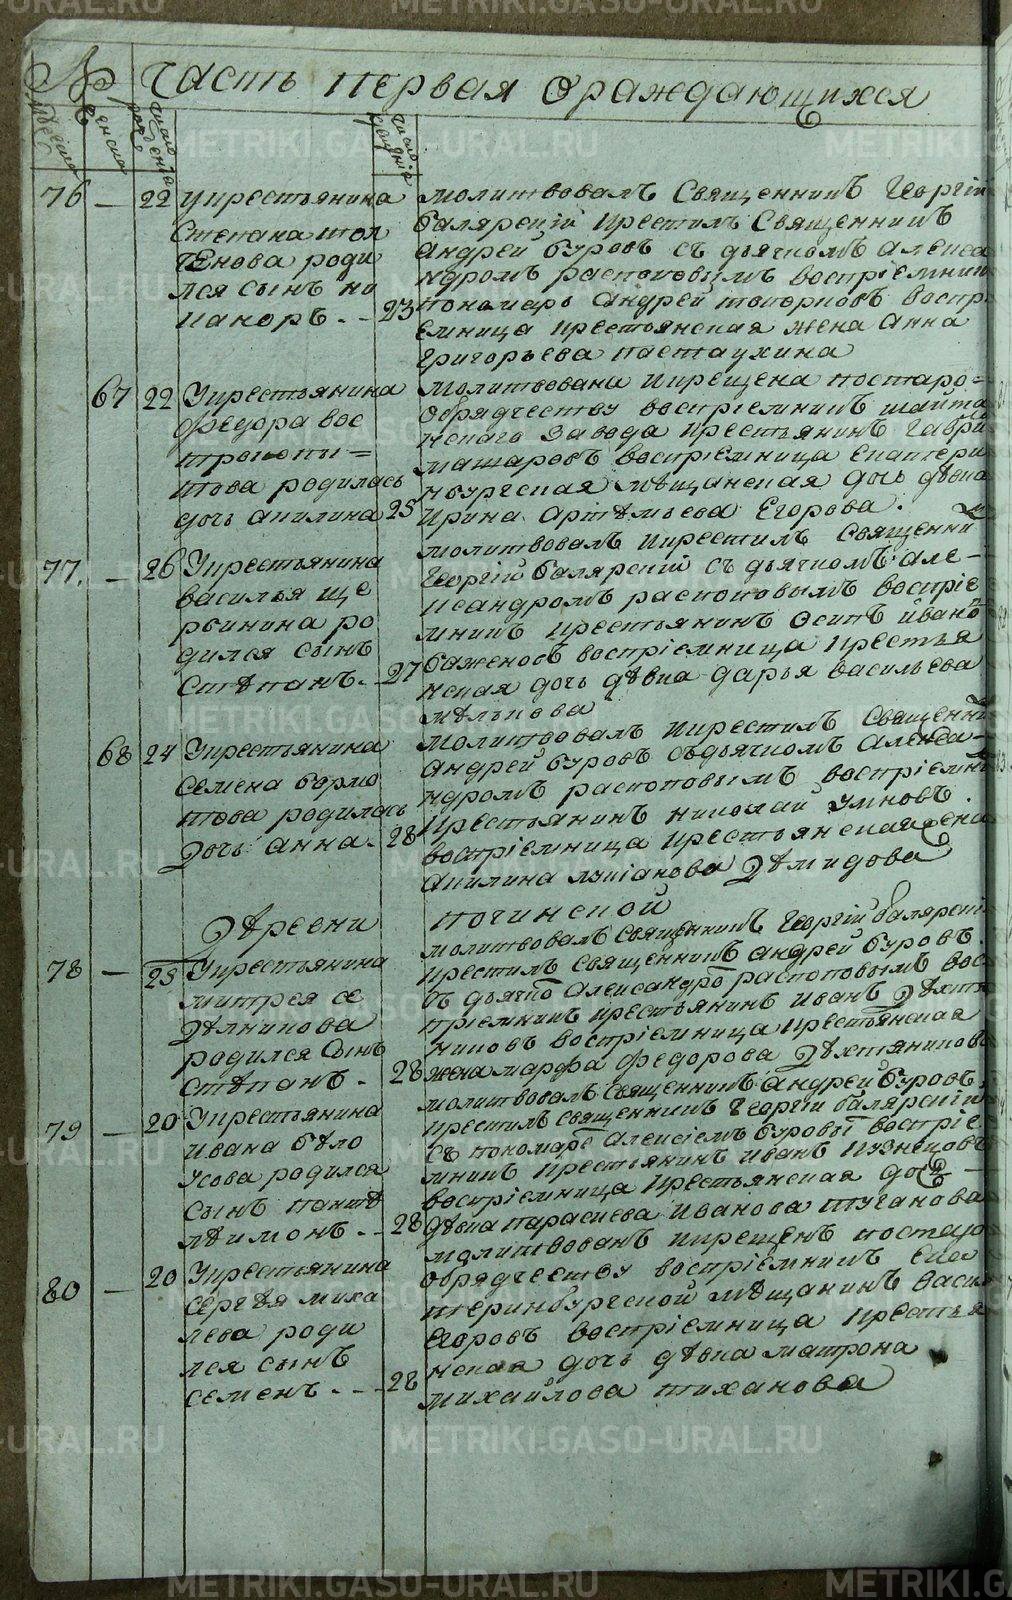 № Часть первая ораждающихся
мужеска
женска
число рожденія
число крещенія
76 — 22 У крестьянина
Степана Мол
ченова роди
лся сынъ Ни
каноръ. - - 23
молитвовалъ Священникъ Георгій
балярский крестилъ Священникъ
Андрей буровъ съ дьячкомъ Алекса
ндромъ распоповымъ воспріемникъ
пономарь Андрей топорковъ воспр
емница крестьянская жена Анна
Григорьева пастаухина
67 22 У крестьянина
Федора вос
трокопы=
това родилась
дочь акилина 25
молитвована и крещена постаро=
обрядчеству воспріемникъ шайта
нскаго завода крестьянинъ гаври
машаровъ воспріемница екатери
нбургская мѣщанская дочь дѣвка
ирина Артѣмьева Егорова.
77. — 26 У крестьянина
василья ще
рбинина ро
дился сынъ
Стѣпанъ. - 27
молитвовалъ и крестилъ Священни
Георгій балярскій съ дьячкомъ але-
ксандромъ распоповымъ воспріе
мникъ крестьянинъ Осипъ ивано
баженовъ воспріемница крестья
нская дочь дѣвка дарья васильева
мѣлькова
68 24 У крестьянина
семена бормо
това родилась
дочь анна. 28
молитвовалъ и крестилъ Священни
андрей буровъ съ дьячкомъ Алекса-
ндромъ распоповымъ воспріемни
крестьянинъ николай умновъ.
воспріемница крестьянская жена
акилина лукіанова Дѣмидова
Дѣревни починской
78 — 25 У крестьянина
митрея се
Дѣлникова
родился сынъ
стѣпанъ - 28
молитвовалъ священникъ Георгій балярскі
крестилъ священникъ андрей буровъ.
съ дьячко Александро распоповымъ вос
пріемникъ крестьянинъ Иванъ Дѣхтя
никовъ воспріемница крестьянская
жена марфа федорова Дѣхтяникова
79 — 20 У крестьянина
ивана бѣло
усова родился
сынъ пантѣ
лѣимонъ. - - 28
молитвовалъ священникъ андрей буровъ.
крестилъ священникъ Георгій балярскій
съ пономаре Алексіемъ буровы воспріе
мникъ крестьянинъ иванъ кузнецовъ
воспріемница крестьянская дочь
дѣвка парасиева иванова туганова
80 — 20 У крестьянина
сергѣя миха
лева роди
лся сынъ
семенъ. - - 28
молитвованъ и крещенъ постаро
обрядчеству воспріемникъ ека
теринбургской мѣщанинъ васил
воспріемница крестья
нская дочь дѣвка матрона
михайлова тиханова
METRIKI.GASO-URAL.RU